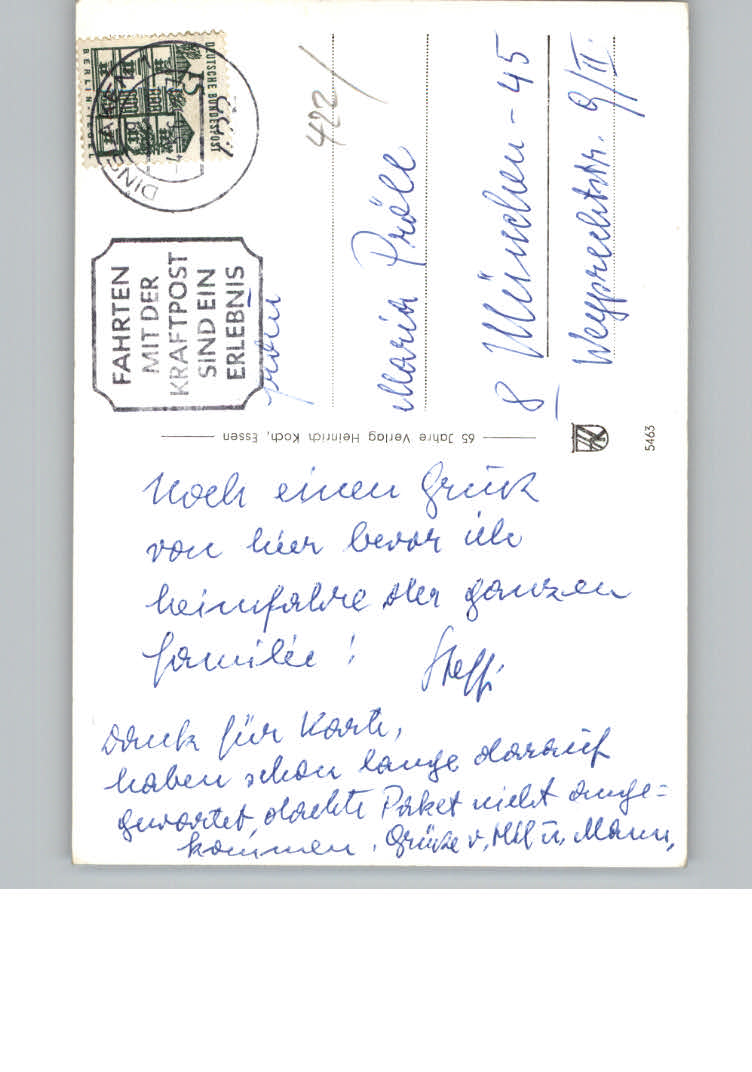 DEUTSCHE BUNDESPOST
BERLIN
15
FAHRTEN
MIT DER
KRAFTPOST
SIND EIN
ERLEBNIS
422/
Maria Pröll
8 München - 45
Weyprechtstr. 9/II.
65 Jahre Verlag Heinrich Koch, Essen
5463
Noch einen Gruß
von hier bevor ich
heimfahre der ganzen
Familie!
Steffi
Dank für Karte,
haben schon lange darauf
gewartet, dachte Paket nicht ange=
kommen. Grüße v. u. Mann,